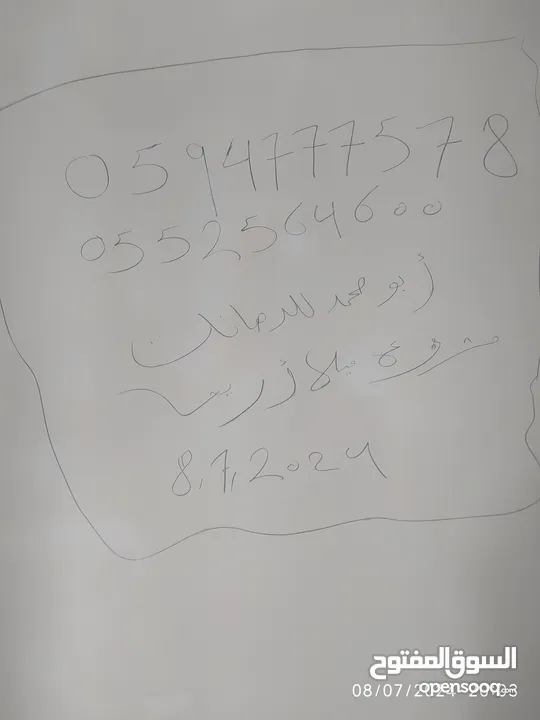 0594777578
0552564600
أبو محمد للدهانات
مشروع فيلا أربعة
8,7,2024
السوق المفتوح
opensooq.com
08/07/2024 20:03